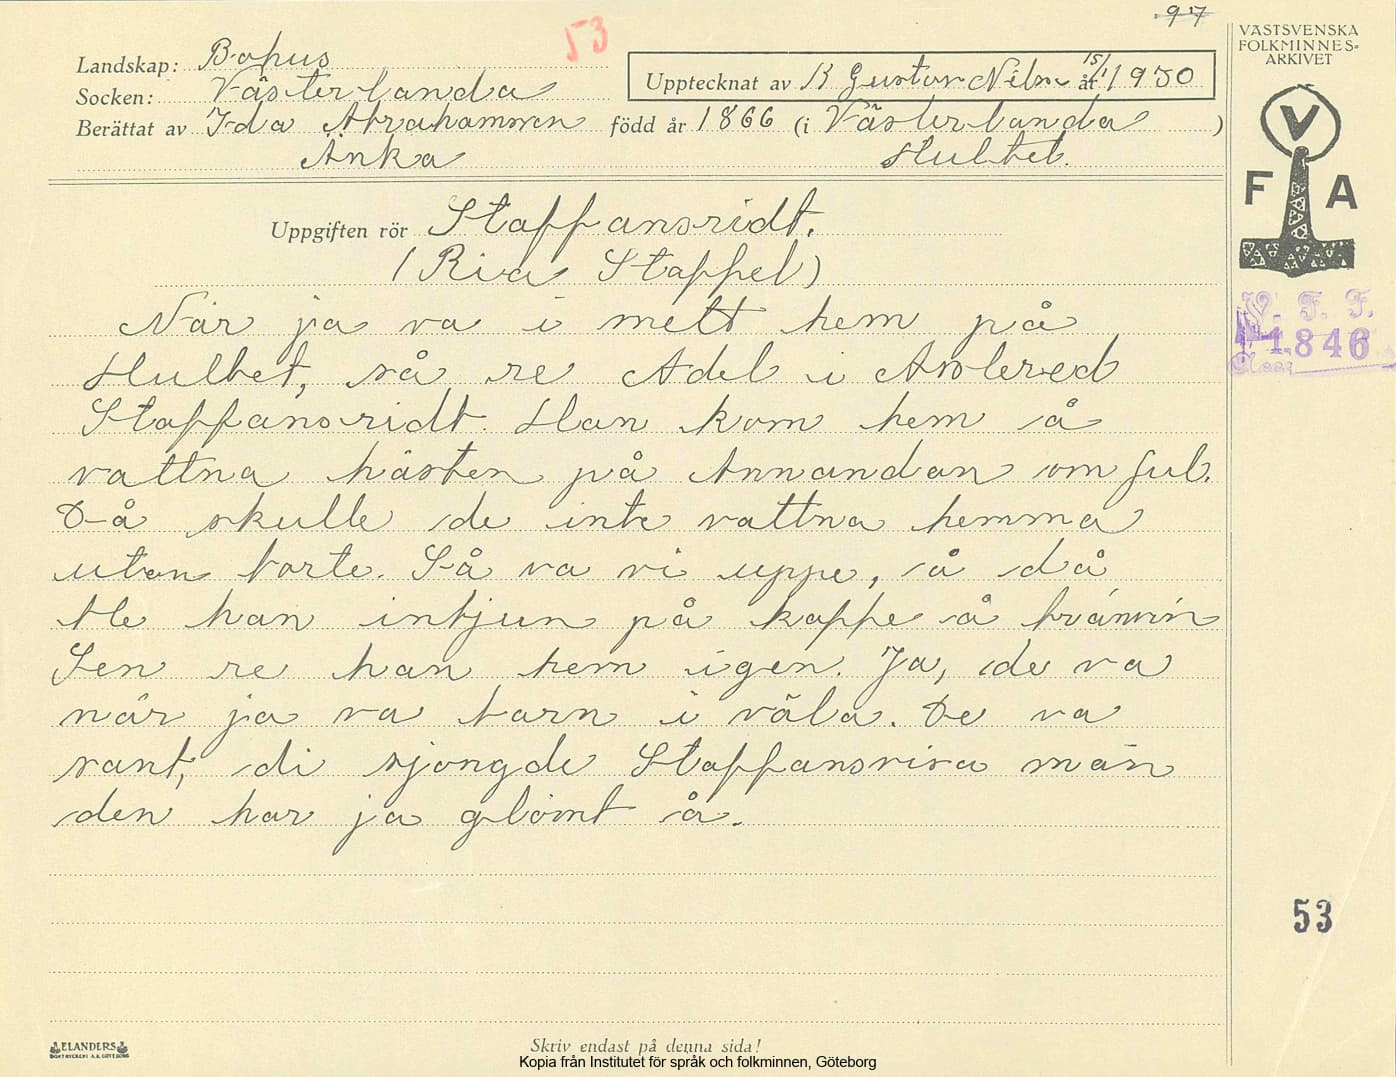 97
53
VÄSTSVENSKA
FOLKMINNES-
ARKIVET
V
F A
Landskap: Bohus
Socken: Västerlanda
Upptecknat av B Gustav Nilsn år 15/1 1930
Berättat av Ida Abrahamsson född år 1866 (i Västerlanda )
Änka Hultet.
Uppgiften rör Staffansridt.
(Ria Staffel)
När ja va i mett hem på
Hultet, så re Adel i Assleröd
Staffansridt. Han kom hem å
vattna hästen på Annandan om Jul.
Då skulle de inte vattna hemma
utan borte. Så va vi uppe, å då
ble han intjun på kaffe å bränvin
Sen re han hem igen. Ja, de va
när ja va barn i väla. De va
sant, di sjongde Staffansvisa män
den har ja glömt å.
V. F. F.
1846
53
ELANDERS
BOKTRYCKERI A.B. GÖTEBORG
Skriv endast på denna sida!
Kopia från Institutet för språk och folkminnen, Göteborg